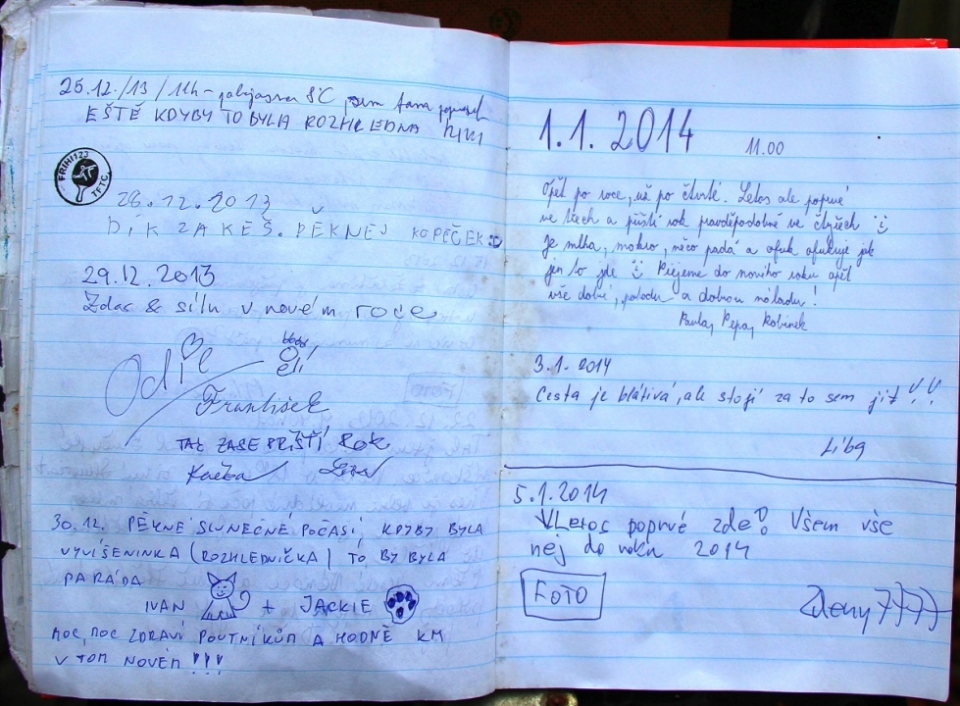 25.12./13/11h - polojasno 8°C jsem tam
EŠTĚ KDYBY TO BYLA ROZHLEDNA
FRIHI123
TFTC
28.12.2013
DÍK ZA KEŠ. PĚKNEJ KOPEČEK:D
29.12.2013
Zdar & sílu v novém roce
Odie
Eli
František
TAK ZASE PŘÍŠTÍ ROK
Kačba
30.12. PĚKNÉ SLUNEČNÉ POČASÍ, KDYBY BYLA
VYVÍŠENINKA (ROZHLEDNIČKA) TO BY BYLA
PARÁDA
IVAN + JACKIE
MOC, MOC ZDRAVÍ POUTNÍKŮM A HODNĚ KM
V TOM NOVÉM !!!
1.1.2014 11.00
Opět po roce, už po čtvrté. Letos ale poprvé
ve třech a příští rok pravděpodobně ve čtyřech
Je mlha, mokro, něco padá a ofuk ofukuje jak
jen to jde Přejeme do nového roku opět
vše dobré, pohodu a dobrou náladu!
Pavla, Pepa, Robinek
3.1.2014
Cesta je blátivá, ale stojí za to sem jít!!
Liba
5.1.2014
Letos poprvé zde! Všem vše
nej do roku 2014
FOTO
Zdeny7777